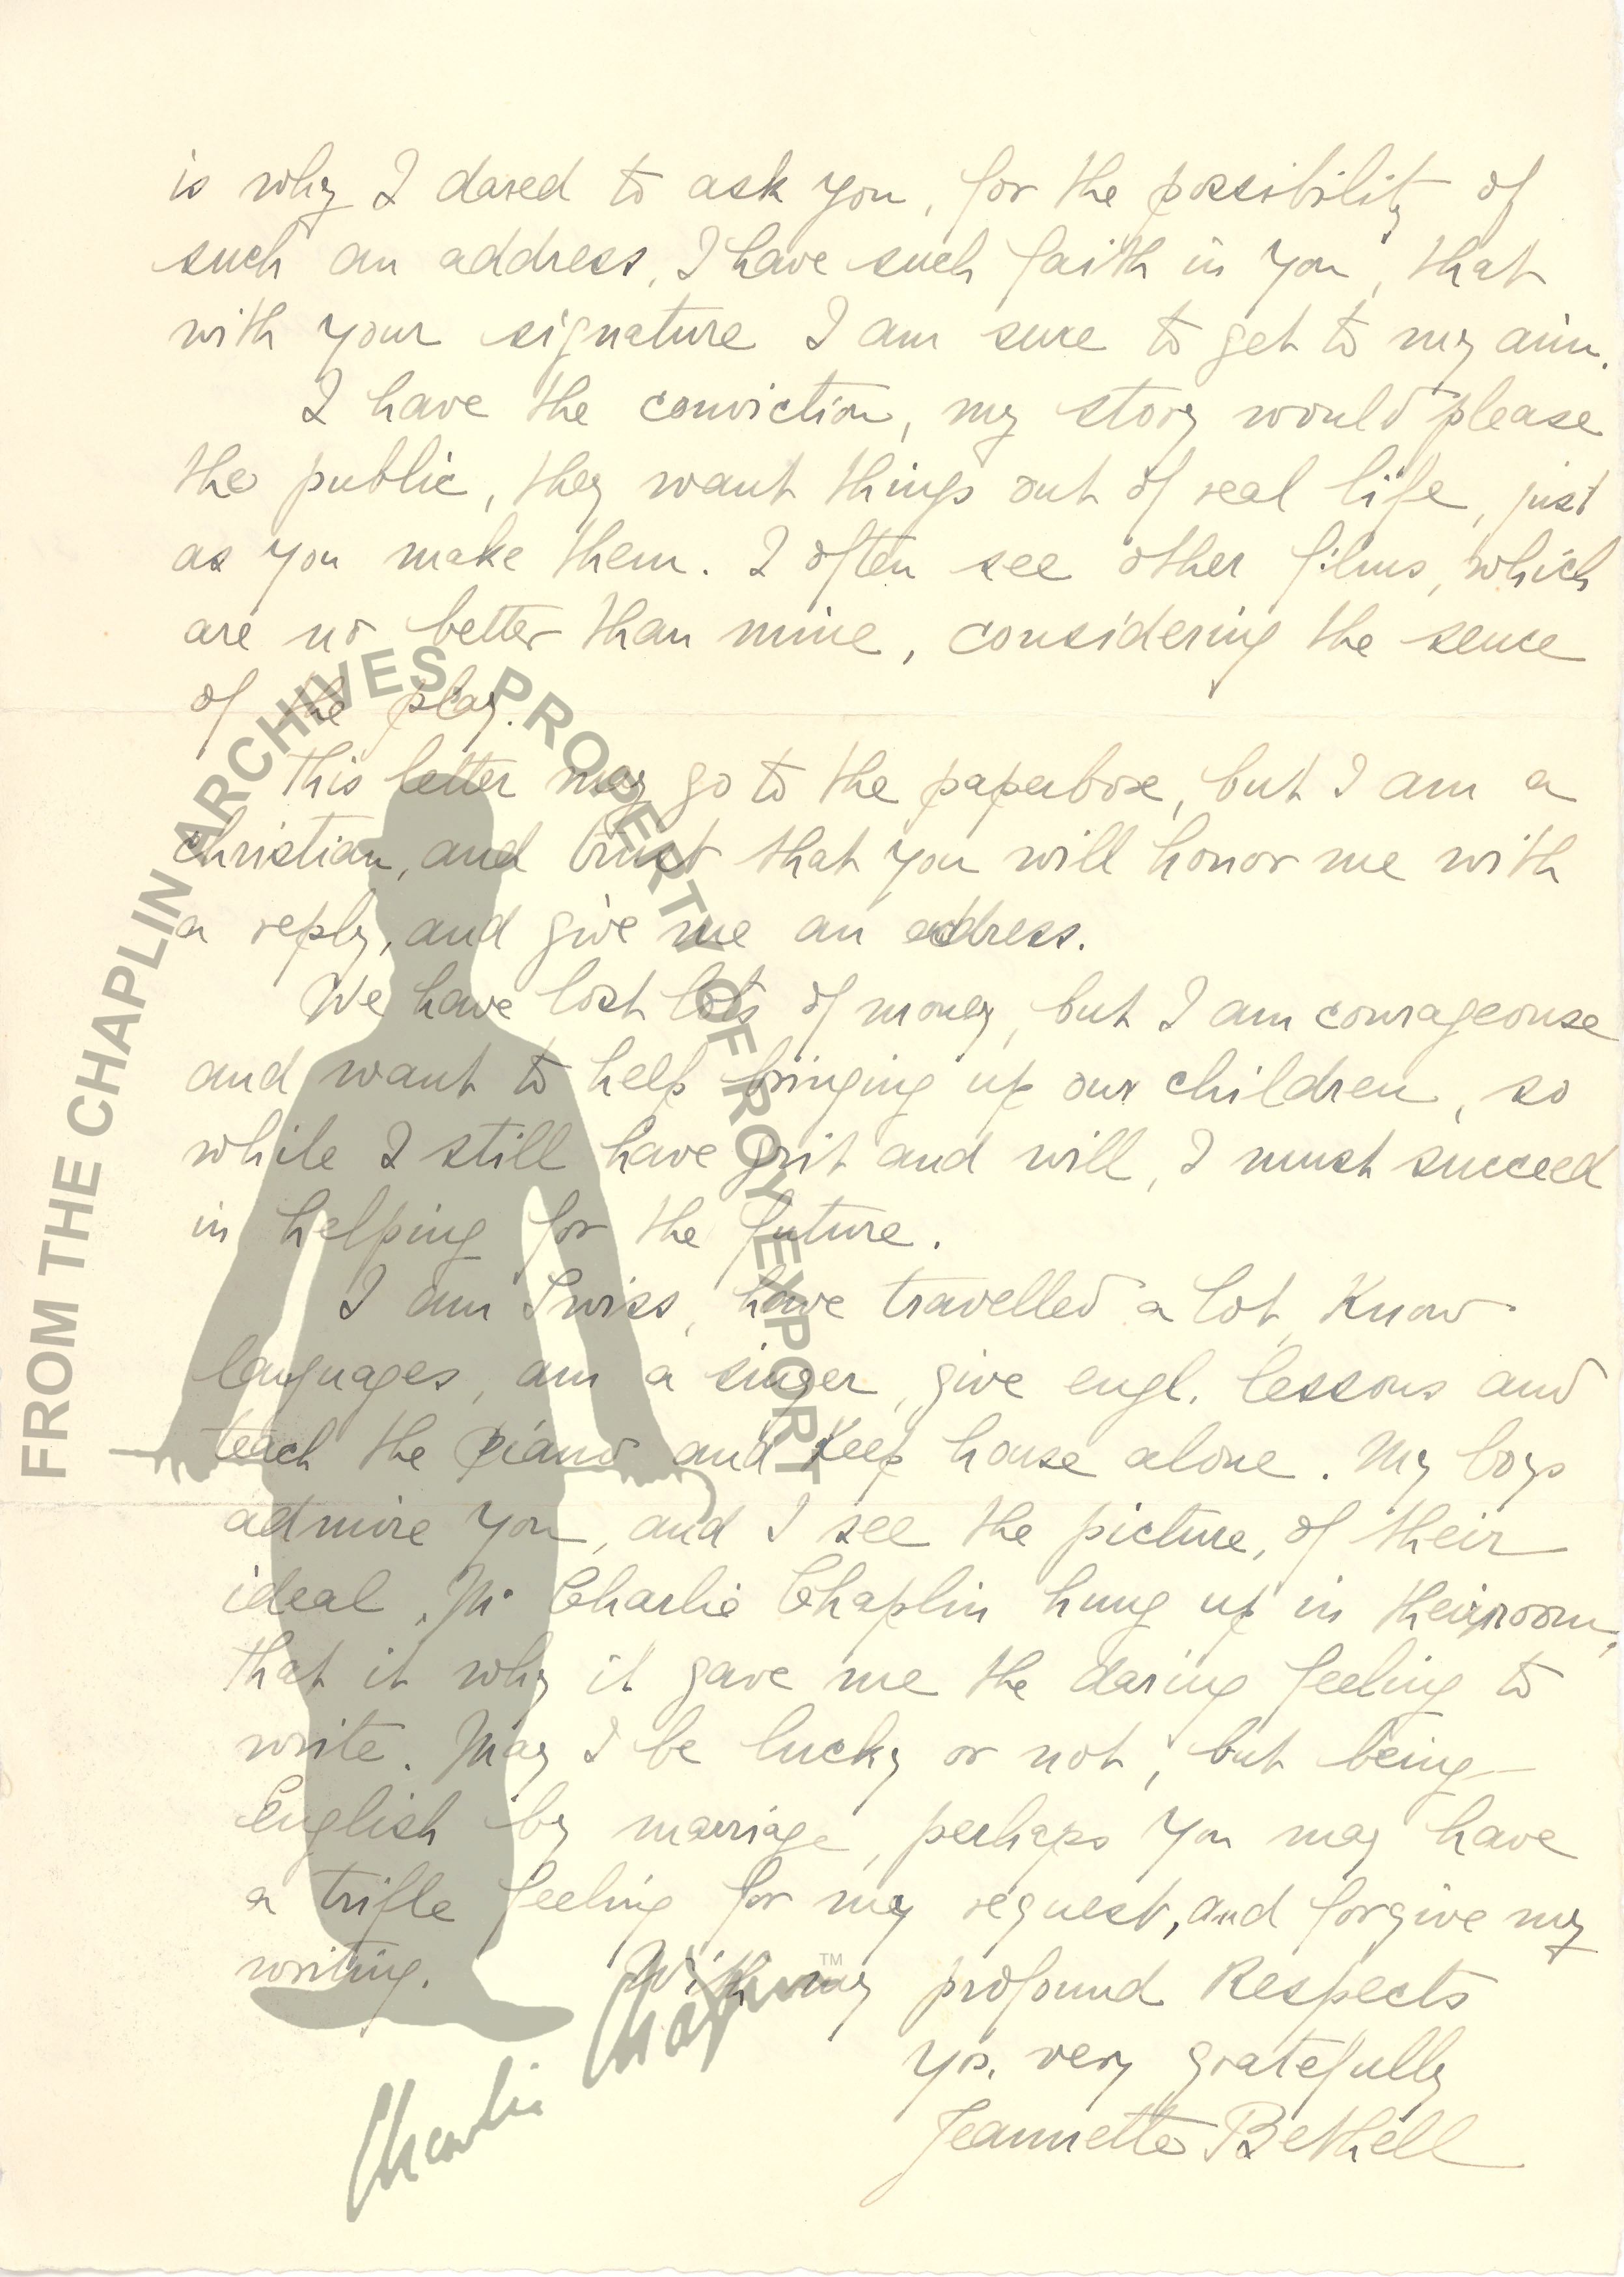 is why I dared to ask you, for the possibility of
such an address, I have such faith in you, that
with your signature I am sure to get to my aim.
I have the conviction, my story would please
the public, they want things out of real life, just
as you make them. I often see other films, which
are no better than mine, considering the sence
of the play.
This letter may go to the paperboxe, but I am a
christian, and trust that you will honor me with
a reply, and give me an address.
We have lost lots of money, but I am courageouse
and want to help bringing up our children, so
while I still have grit and will, I must succeed
in helping for the future.
I am Swiss, have travelled a lot, Know
languages, am a singer, give engl. lessons and
teach the Piano and Keep house alone. My boys
admire you, and I see the picture, of their
ideal, Mr Charlie Chaplin hung up in their room,
that it why it gave me the daring feeling to
write. May I be lucky or not, but being
English by marriage, perhaps you may have
a trifle feeling for my request, and forgive my
writing. With my profound Respects
yrs. very gratefully
Jeannette Bethell
FROM THE CHAPLIN ARCHIVES PROPERTY OF ROY EXPORT
Charlie Chaplin™